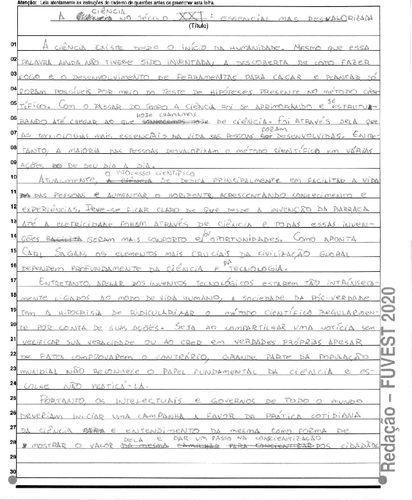 Atenção: Leia atentamente as instruções do caderno de questões antes de preencher esta folha.
CIÊNCIA
A NO SÉCULO XXI: ESSENCIAL MAS DESVALORIZADA
(Título)
01 A CIÊNCIA EXISTE DESDE O INÍCIO DA HUMANIDADE. MESMO QUE ESSA
02 PALAVRA AINDA NÃO TIVESSE SIDO INVENTADA, A DESCOBERTA DE COMO FAZER
03 FOGO E O DESENVOLVIMENTO DE FERRAMENTAS PARA CAÇAR E PLANTAR SÓ
04 FORAM POSSÍVEIS POR MEIO DO TESTE DE HIPÓTESES PRESENTE NO MÉTODO CIEN-
05 TÍFICO. COM O PASSAR DO TEMPO A CIÊNCIA FOI SE APRIMORANDO E SE ESTRUTU-
06 RANDO ATÉ CHEGAR AO QUE HOJE CHAMAMOS DE CIÊNCIA. FOI ATRAVÉS DELA QUE
07 AS TECNOLOGIAS MAIS ESSENCIAIS NA VIDA DAS PESSOAS FORAM DESENVOLVIDAS. ENTRE-
08 TANTO, A MAIORIA DAS PESSOAS DESVALORIZAM O MÉTODO CIENTÍFICO EM VÁRIAS
09 AÇÕES DE SEU DIA A DIA.
10 ATUALMENTE, O PROCESSO CIENTÍFICO SE DEDICA PRINCIPALMENTE EM FACILITAR A VIDA
11 DAS PESSOAS E AUMENTAR O HORIZONTE ACRESCENTANDO CONHECIMENTO E
12 EXPERIÊNCIAS. DEVE-SE FICAR CLARO DE QUE DESDE A INVENÇÃO DA BARRACA
13 ATÉ A ELETRICIDADE FORAM ATRAVÉS DE CIÊNCIA E TODAS ESSAS INVEN-
14 ÇÕES GERAM MAIS CONFORTO E OPORTUNIDADES. COMO APONTA
15 CARL SAGAN: OS ELEMENTOS MAIS CRUCIAIS DA CIVILIZAÇÃO GLOBAL
16 DEPENDEM PROFUNDAMENTE DA CIÊNCIA E DA TECNOLOGIA.
17 ENTRETANTO, APESAR DOS INVENTOS TECNOLÓGICOS ESTAREM TÃO INTRINSECA-
18 MENTE LIGADOS AO MODO DE VIDA HUMANO, A SOCIEDADE DA PÓS-VERDADE
19 TEM A HIPOCRISIA DE RIDICULARIZAR O MÉTODO CIENTÍFICO REGULARMEN-
20 TE POR CONTA DE SUAS AÇÕES. SEJA AO COMPARTILHAR UMA NOTÍCIA SEM
21 VERIFICAR SUA VERACIDADE OU AO CRER EM VERDADES PRÓPRIAS APESAR
22 DE FATOS COMPROVAREM O CONTRÁRIO, GRANDE PARTE DA POPULAÇÃO
23 MUNDIAL NÃO RECONHECE O PAPEL FUNDAMENTAL DA CIÊNCIA E ES-
24 COLHE NÃO PRATICÁ-LA.
25 PORTANTO, OS INTELECTUAIS E GOVERNOS DE TODO O MUNDO
26 DEVERIAM INICIAR UMA CAMPANHA A FAVOR DA PRÁTICA COTIDIANA
27 DA CIÊNCIA E ENTENDIMENTO DA MESMA COMO FORMA DE
28 MOSTRAR O VALOR DELA E DAR UM PASSO NA CONSCIENTIZAÇÃO DOS CIDADÃOS
29
30
Redação – FUVEST 2020